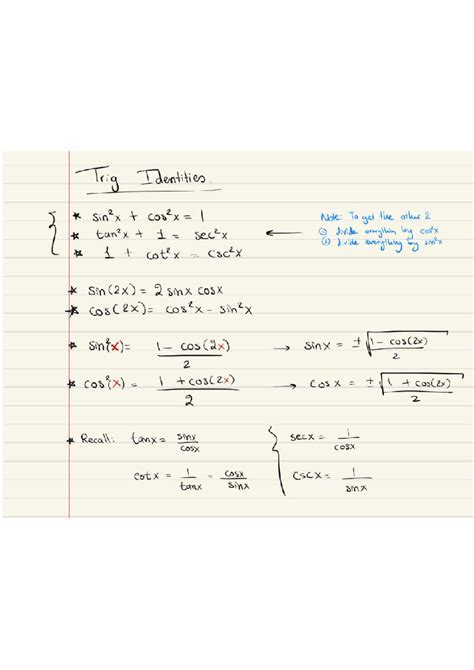 Trig Identities.
* sin²x + cos²x = 1
* tan²x + 1 = sec²x
* 1 + cot²x = csc²x
Note: To get the other 2
① divide everything by cos²x
② divide everything by sin²x
* sin(2x) = 2 sinx cosx
* cos(2x) = cos²x - sin²x
* sin²(x) = (1 - cos(2x))/2 → sinx = ±√((1 - cos(2x))/2)
* cos²(x) = (1 + cos(2x))/2 → cosx = ±√((1 + cos(2x))/2)
* Recall: tanx = sinx/cosx secx = 1/cosx
cotx = 1/tanx = cosx/sinx cscx = 1/sinx